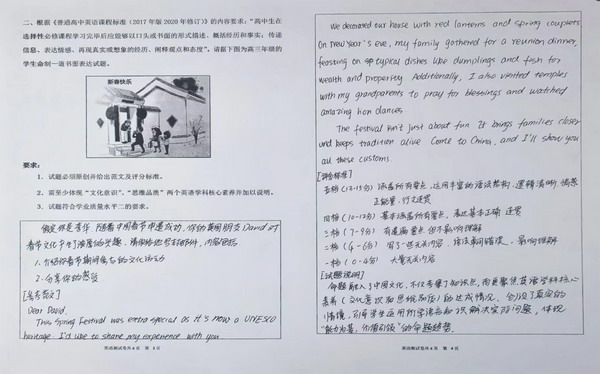 二、根据《普通高中英语课程标准（2017年版2020年修订）》的内容要求："高中生在
选择性必修课程学习完毕后应能够以口头或书面的形式描述、概括经历和事实；传递
信息、表达情感、再现真实或想象的经历、阐释观点和态度"。请据下图为高三年级的
学生命制一道书面表达试题。
新春快乐
要求：
1. 试题必须原创并给出范文及评分标准。
2. 需至少体现"文化意识"、"思维品质"两个英语学科核心素养并加以说明。
3. 试题符合学业质量水平二的要求。
假定你是李华，随着中国春节申遗成功，你的英国朋友David对
春节文化产生了浓厚的兴趣，请你给他写封邮件，内容包括
1.介绍你春节期间参与的文化活动
2.分享你的感受
[参考范文]
Dear David,
This Spring Festival was extra special as it's now a UNESCO
heritage. I'd like to share my experience with you
英语测试卷共4页 第3页
We decorated our house with red lanterns and spring couplets
On New Year's eve, my family gathered for a reunion dinner,
feasting on typical dishes like dumplings and fish for
wealth and properity. Additionally, I also visited temples
with my grandparents to pray for blessings and watched
amazing lion dances.
The festival isn't just about fun. It brings families closer
and keeps tradition alive. Come to China, and I'll show you
all these customs.
[评分标准]
五档(13-15分) 涵盖所有要点，运用丰富的语法结构，逻辑清晰
正能量，行文连贯
四档(10-12分) 基本涵盖所有要点，表达基本正确 连贯
三档(7-9分) 有遗漏要点 但不影响理解
二档(4-6分) 写了一些无关内容，语法错误 影响理解
一档(0-4分) 大量无关内容
[试题说明]
命题融入了中国文化，不仅考察了知识点，而且聚焦英语学科核心
素养(文化意识和思维品质)的达成情况，创设了真实的
情境，引导学生运用所学语言知识解决实际问题，体现
"能力为基，价值引领"的命题趋势。
英语测试卷共4页 第4页